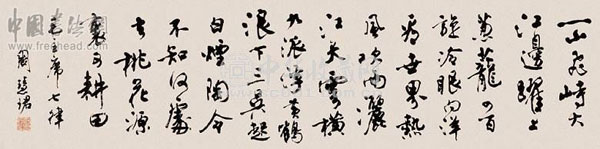 一山飛峙大
江邊躍上
蔥蘢四百
旋冷眼向洋
看世界熱
風吹雨灑
江天雲橫
九派浮黃鶴
浪下三吳起
白煙陶令
不知何處
去桃花源
裏可耕田
毛主席七律
周慧珺
中国书法网
www.freehead.com